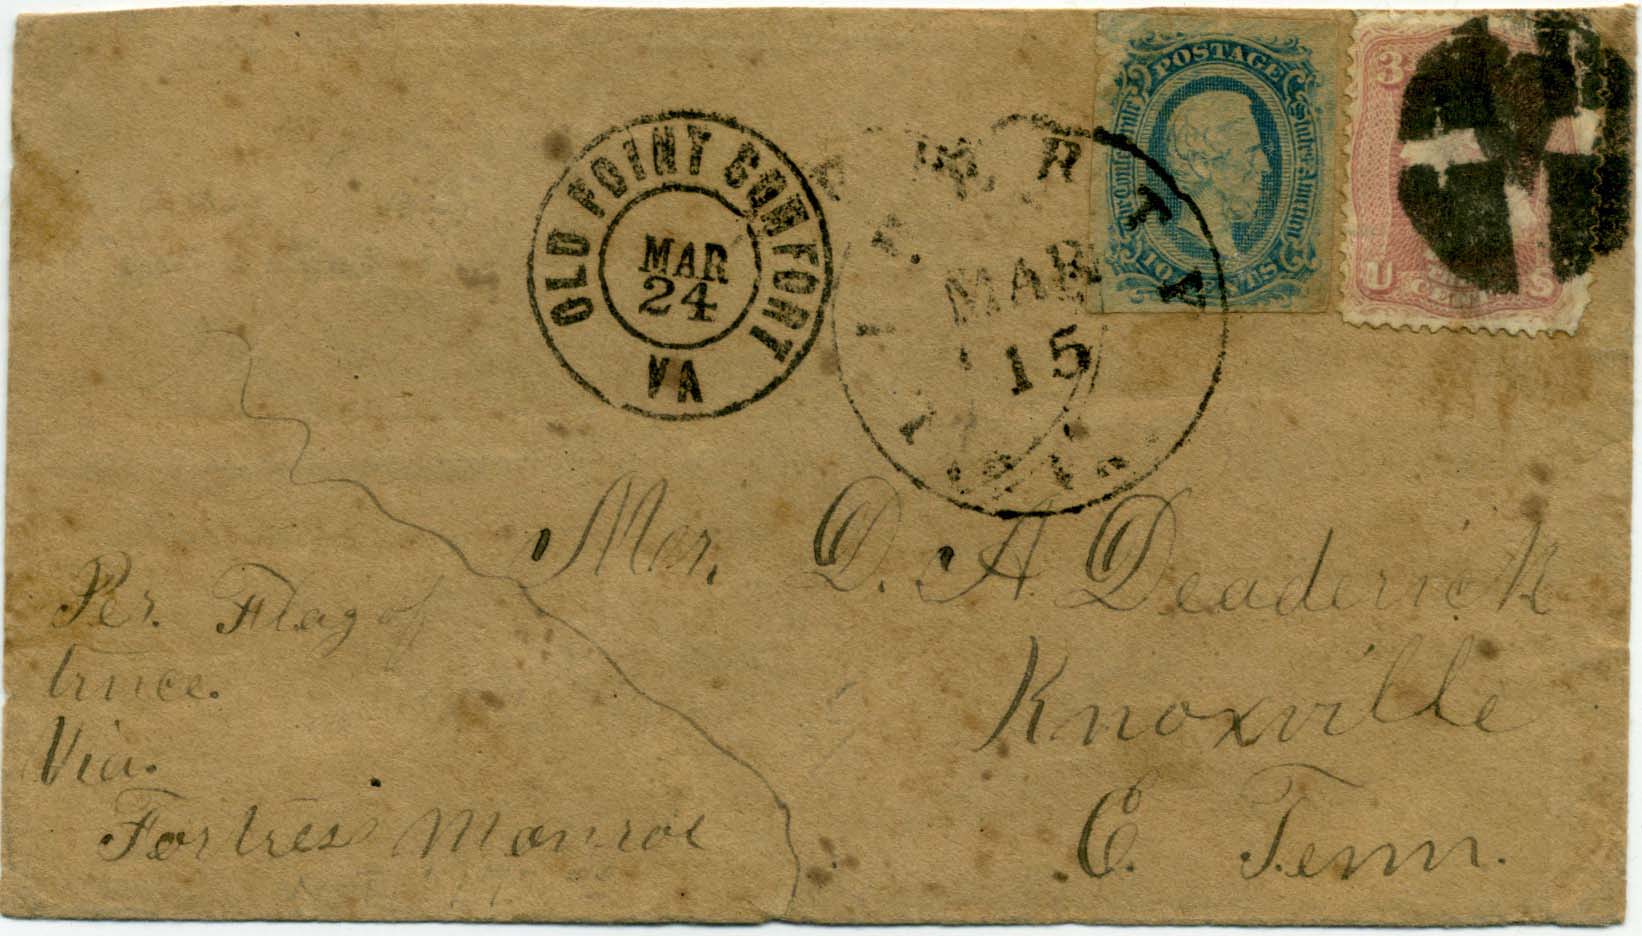 OLD POINT COMFORT
MAR
24
VA
MAR
15
POSTAGE
The Confederate
States America
TEN CENTS
3
U S
CENTS
Mrs. D. A. Deaderick
Knoxville
E. Tenn.
Per. Flag of
truce.
Via.
Fortress Monroe